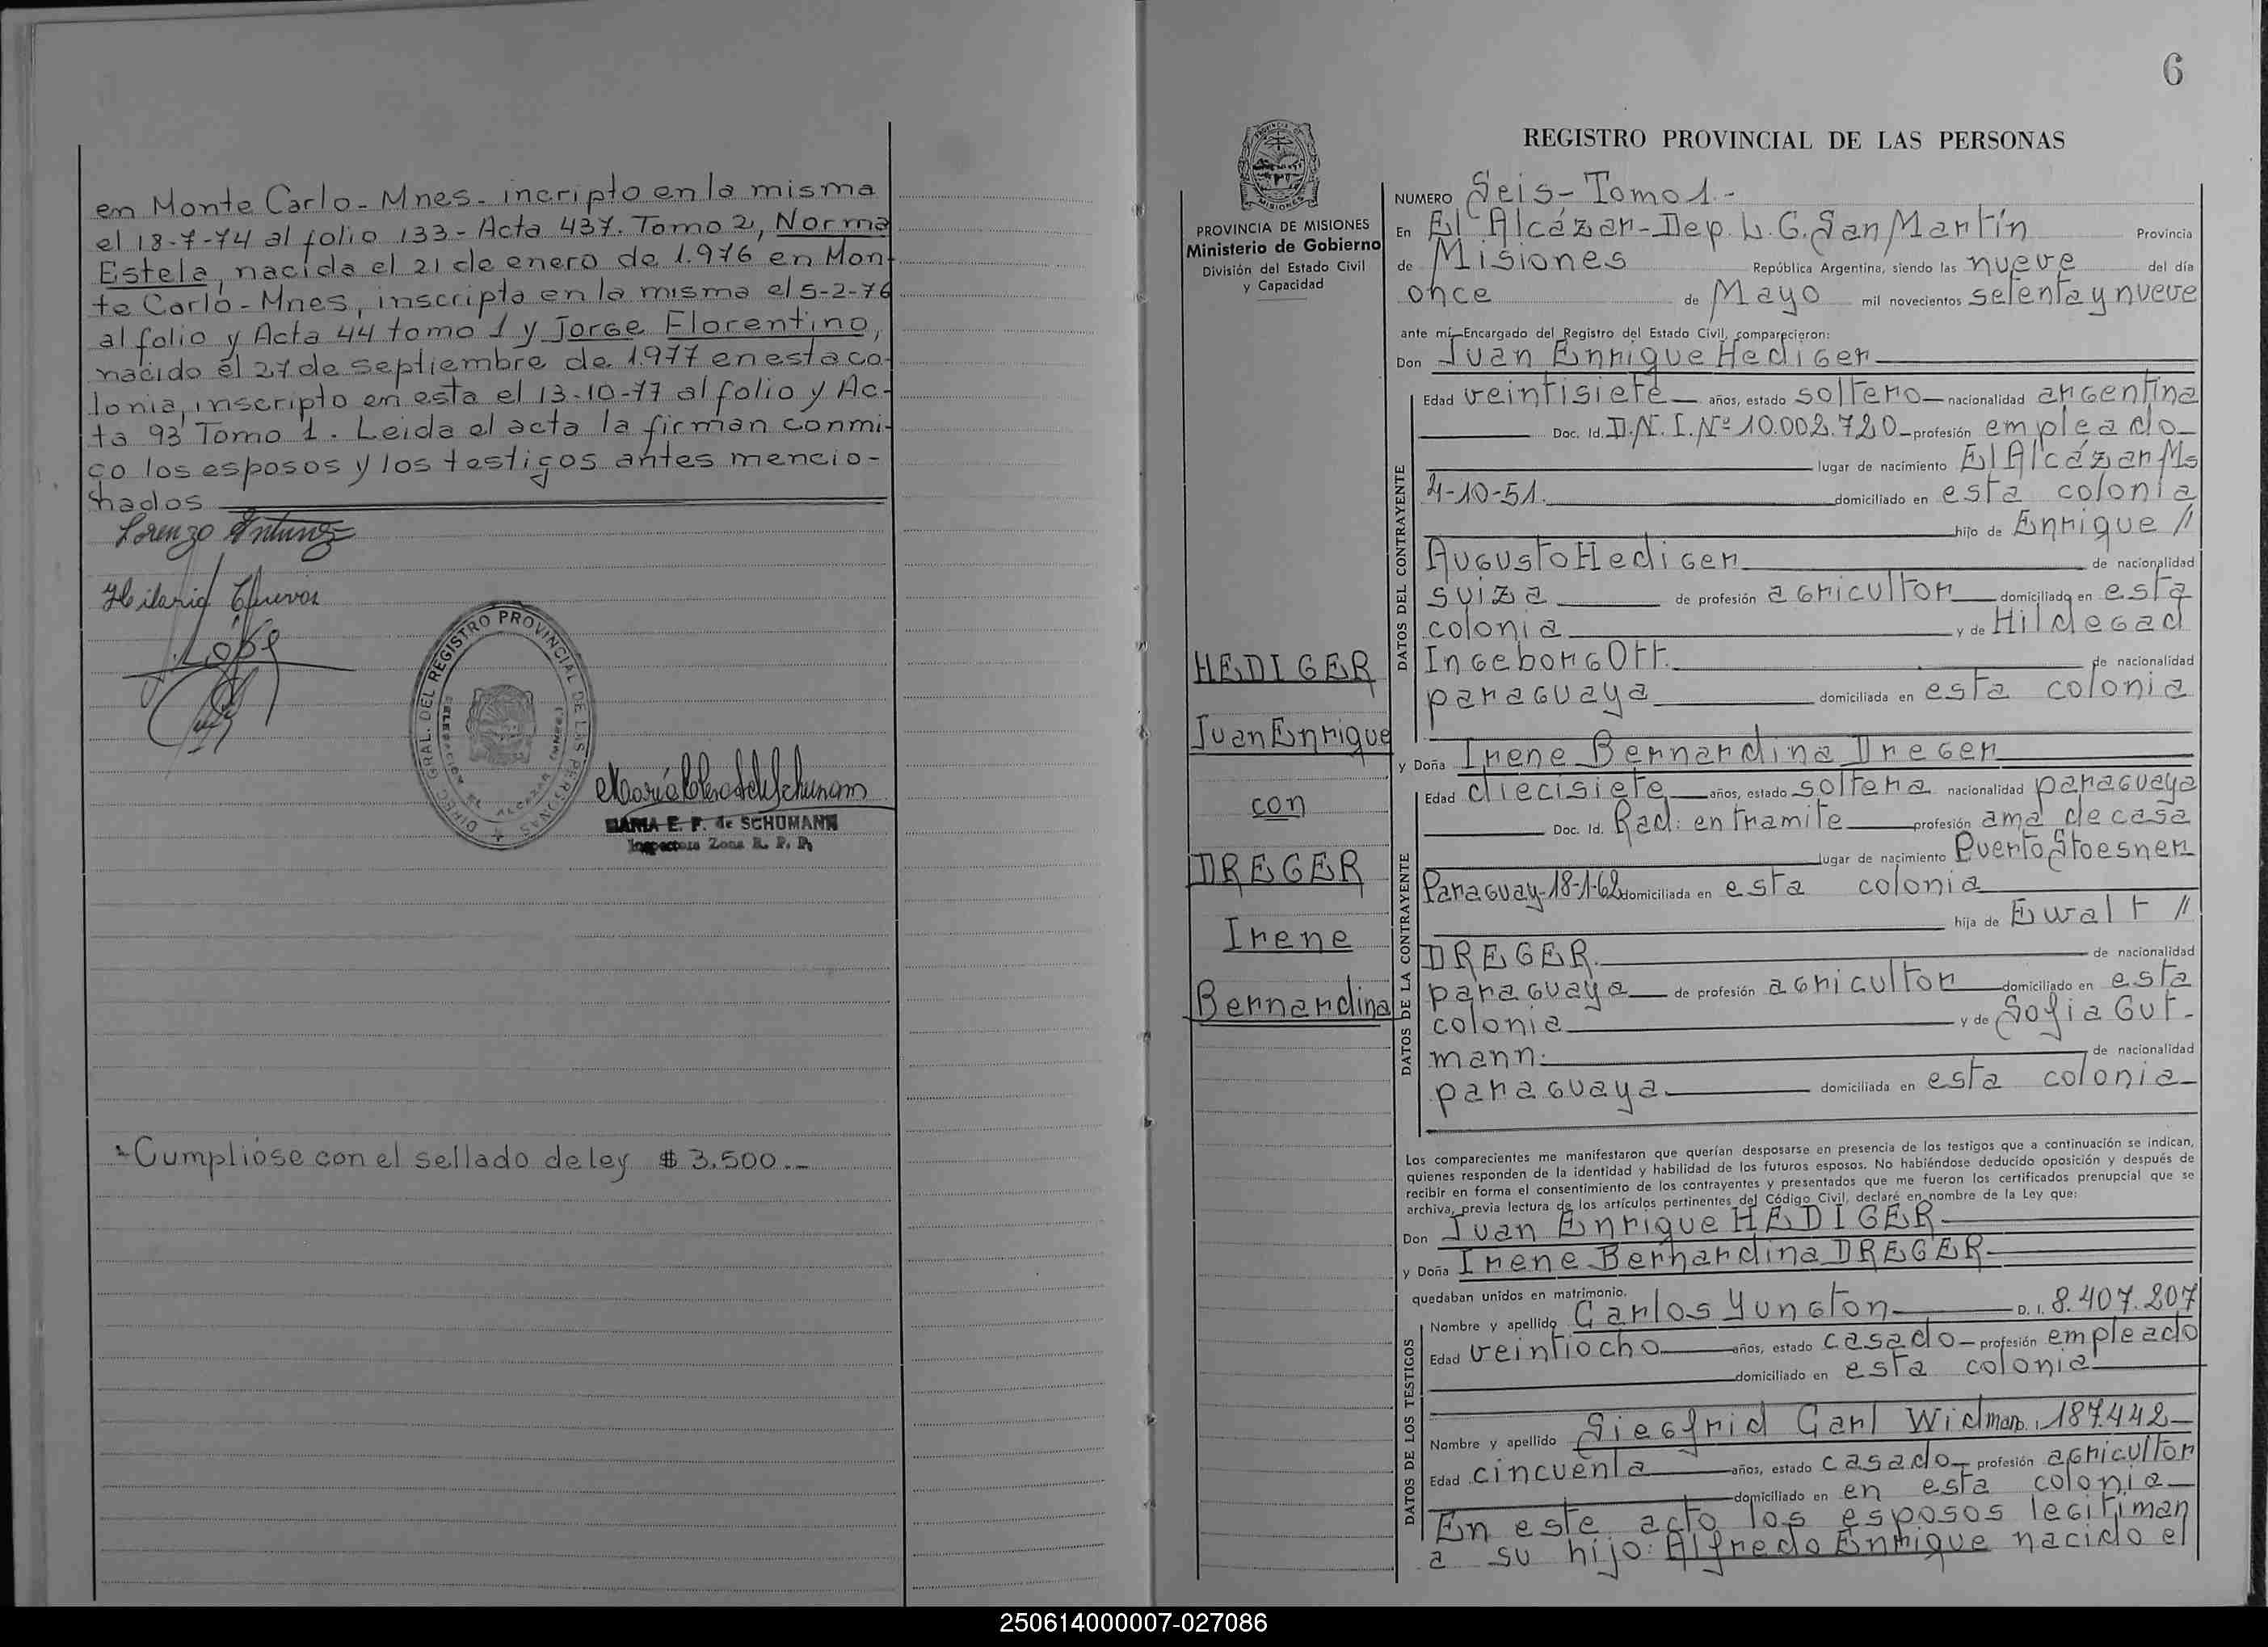 en Monte Carlo - Mnes - incripto en la misma
el 18-7-74 al folio 133 - Acta 437. Tomo 2, Norma
Estela, nacida el 21 de enero de 1.976 en Mon-
te Carlo - Mnes, inscripta en la misma el 5-2-76
al folio y Acta 44 tomo 1 y Jorge Florentino,
nacido el 27 de septiembre de 1.977 en esta co-
lonia, inscripto en esta el 13-10-77 al folio y Ac-
ta 93 Tomo 1. Leida el acta la firman conmi-
go los esposos y los testigos antes mencio-
nados
Lorenzo Antunez
Hilaria
López
DIREC. GRAL. DEL REGISTRO PROVINCIAL DE LAS PERSONAS
MARIA E. F. de SCHUMANN
Inspectora Zona R. P. P.
- Cumplióse con el sellado de ley $ 3.500.-
6
REGISTRO PROVINCIAL DE LAS PERSONAS
PROVINCIA DE MISIONES
Ministerio de Gobierno
División del Estado Civil
y Capacidad
HEDIGER
Juan Enrique
con
DREGER
Irene
Bernardina
NUMERO Seis - Tomo 1.-
En El Alcázar - Dep. L. G. San Martín Provincia
de Misiones República Argentina, siendo las nueve del día
once de Mayo mil novecientos setenta y nueve
ante mí Encargado del Registro del Estado Civil, comparecieron:
Don Juan Enrique Hediger
DATOS DEL CONTRAYENTE
Edad veintisiete años, estado soltero nacionalidad argentina
Doc. Id. D.N.I. Nº 10.002.720 profesión empleado
lugar de nacimiento El Alcázar Ms
4-10-51. domiciliado en esta colonia
hijo de Enrique //
Augusto Hediger de nacionalidad
suiza de profesión agricultor domiciliado en esta
colonia y de Hildegad
Ingeborg Ott. de nacionalidad
paraguaya domiciliada en esta colonia
y Doña Irene Bernardina Dreger
DATOS DE LA CONTRAYENTE
Edad diecisiete años, estado soltera nacionalidad paraguaya
Doc. Id. Rad: en tramite profesión ama de casa
lugar de nacimiento Puerto Stoesner
Paraguay - 18-1-62 domiciliada en esta colonia
hija de Ewalt //
DREGER. de nacionalidad
paraguaya de profesión agricultor domiciliado en esta
colonia y de Sofia Gut-
mann. de nacionalidad
paraguaya. domiciliada en esta colonia
Los comparecientes me manifestaron que querían desposarse en presencia de los testigos que a continuación se indican,
quienes responden de la identidad y habilidad de los futuros esposos. No habiéndose deducido oposición y después de
recibir en forma el consentimiento de los contrayentes y presentados que me fueron los certificados prenupcial que se
archiva, previa lectura de los artículos pertinentes del Código Civil, declaré en nombre de la Ley que:
Don Juan Enrique HEDIGER
y Doña Irene Bernardina DREGER
quedaban unidos en matrimonio.
DATOS DE LOS TESTIGOS
Nombre y apellido Carlos Yungton D. I. 8.407.207
Edad veintiocho años, estado casado profesión empleado
domiciliado en esta colonia
Nombre y apellido Siegfrid Carl Widman. 187.442
Edad cincuenta años, estado casado profesión agricultor
domiciliado en en esta colonia
En este acto los esposos legitiman
a su hijo: Alfredo Enrique nacido el
250614000007-027086